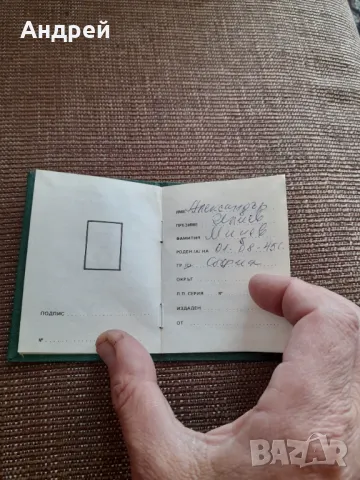 Андрей
ИМЕ Александър
ПРЕЗИМЕ Илиев
ФАМИЛИЯ Милев
РОДЕН (А) НА
ГР. София
ОКРЪГ
П. П. СЕРИЯ №
ИЗДАДЕН
ОТ
ПОДПИС
BAZAR